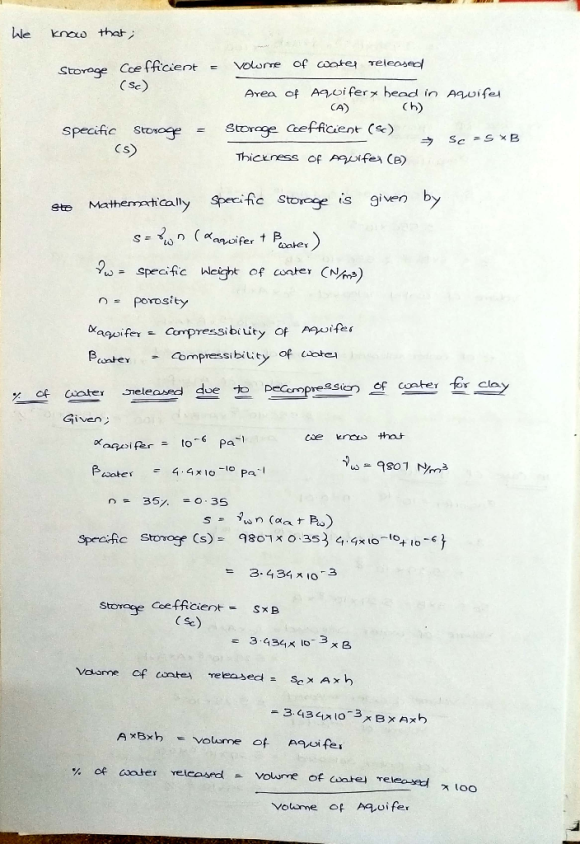 We know that;
Storage Coefficient = Volume of water released
(Sc)
Area of Aquifer x head in Aquifer
(A) (h)
Specific Storage = Storage Coefficient (Sc) ⇒ Sc = S x B
(S)
Thickness of Aquifer (B)
Mathematically Specific Storage is given by
S = γw n (αaquifer + βwater)
γw = Specific Weight of water (N/m³)
n = porosity
αaquifer = Compressibility of Aquifer
βwater = Compressibility of water
% of water released due to Decompression of water for clay
Given;
αaquifer = 10⁻⁶ Pa⁻¹ we know that
βwater = 4.4x10⁻¹⁰ Pa⁻¹ γw = 9807 N/m³
n = 35% = 0.35
S = γwn (αa + βw)
Specific Storage (S) = 9807 x 0.35 { 4.4x10⁻¹⁰ + 10⁻⁶ }
= 3.434 x 10⁻³
Storage Coefficient = S x B
(Sc)
= 3.434 x 10⁻³ x B
Volume of water released = Sc x A x h
= 3.434x10⁻³ x B x A x h
A x B x h = Volume of Aquifer
% of water released = Volume of water released x 100
Volume of Aquifer